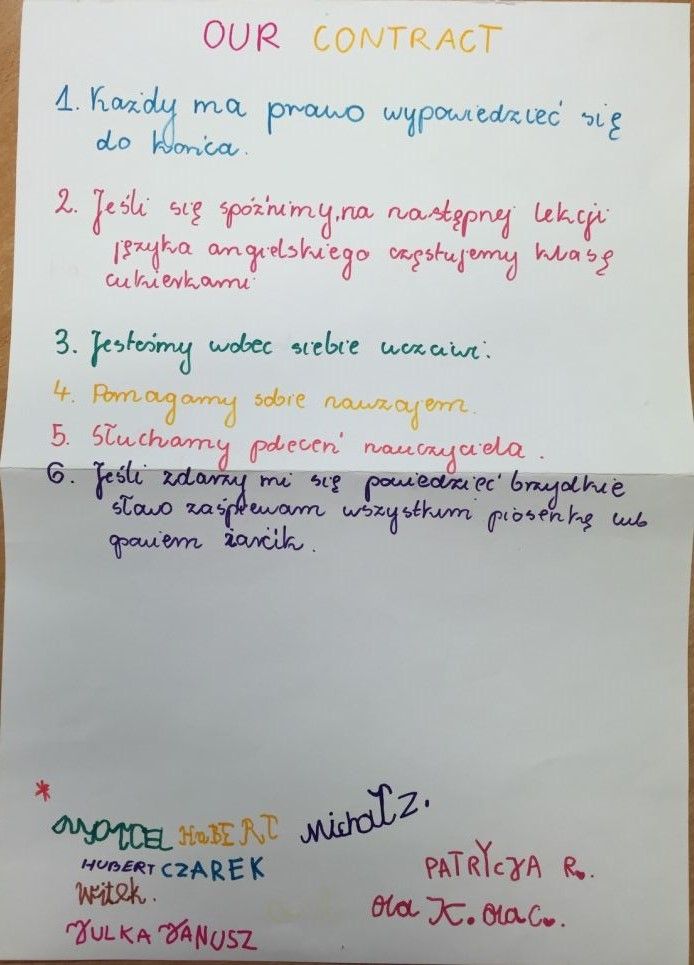 OUR CONTRACT
1. Każdy ma prawo wypowiedzieć się
do końca.
2. Jeśli się spóźnimy, na następnej lekcji
języka angielskiego częstujemy klasę
cukierkami
3. Jesteśmy wobec siebie uczciwi.
4. Pomagamy sobie nawzajem.
5. Słuchamy poleceń nauczyciela.
6. Jeśli zdarzy mi się powiedzieć brzydkie
słowo zaśpiewam wszystkim piosenkę lub
opowiem żarcik.
*
HUBERT Michał Z.
HUBERT CZAREK
PATRYCJA R.
Witek.
Ola K. Ola C.
JULKA JANUSZ